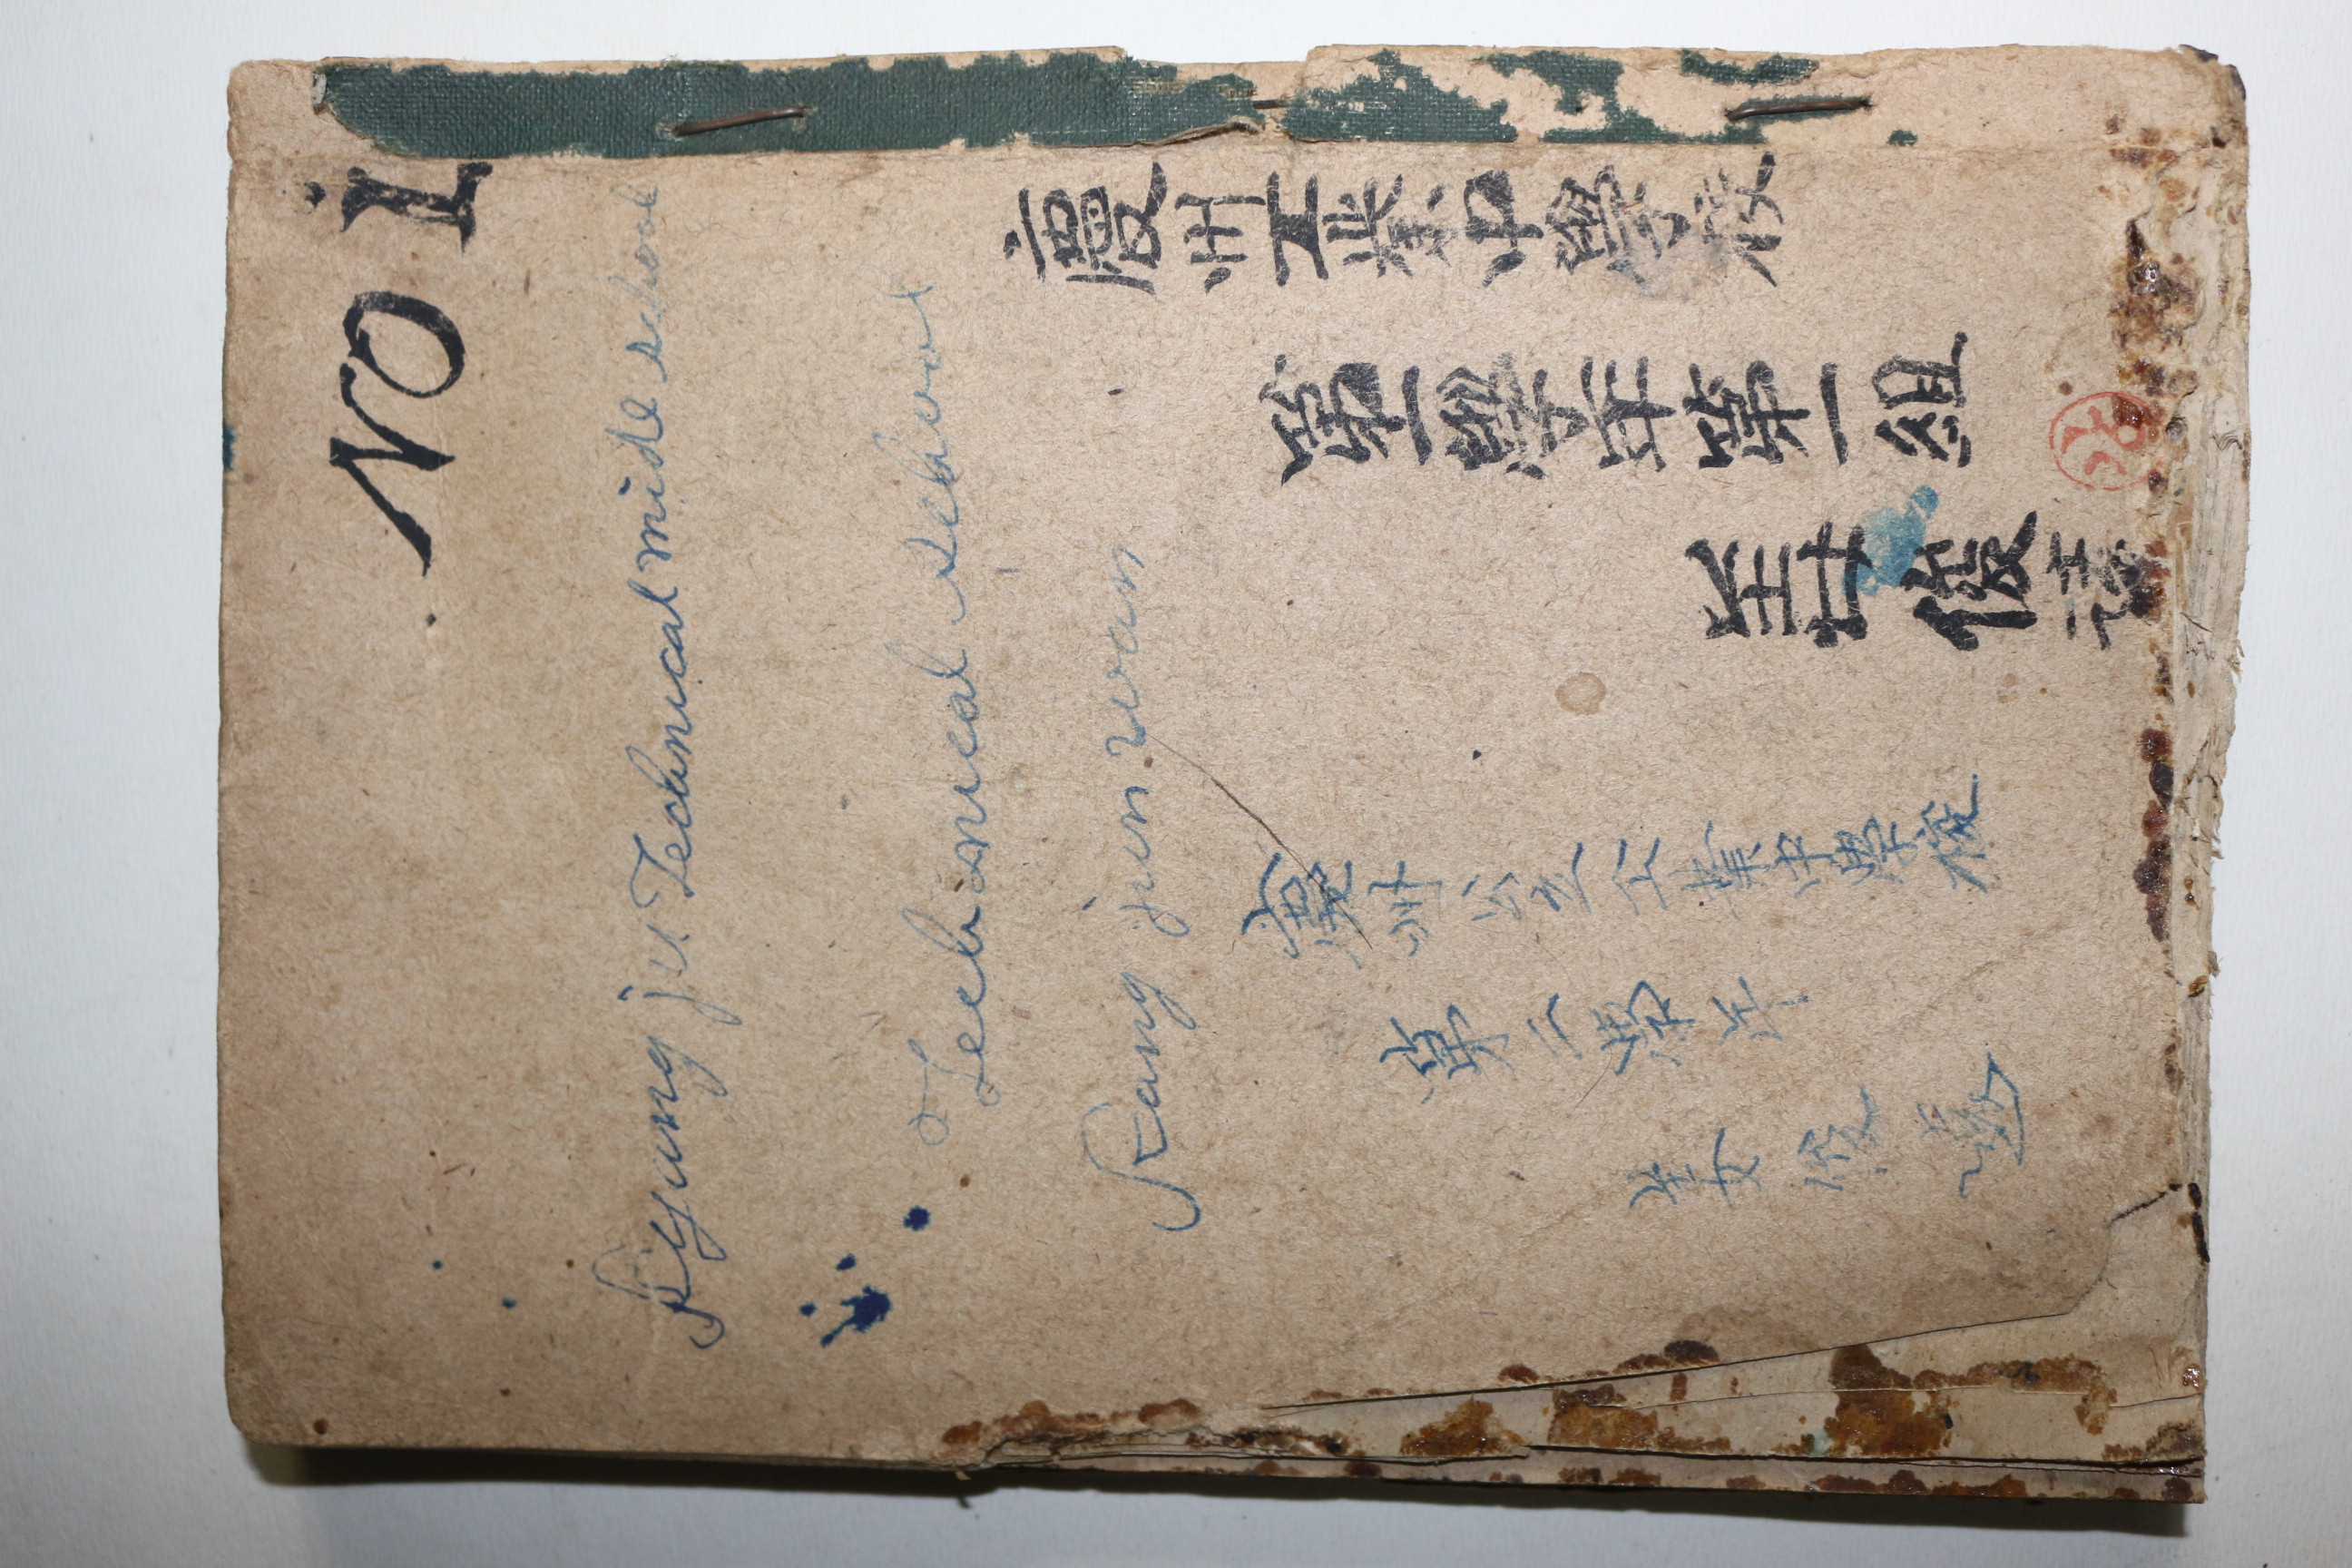 NO 1
Kyung ju Technical midle school
Techanical school
Kang jun wan
慶州工業中學校
第一學年第一組
姜俊
慶州公立工業中學校
第二學年
姜俊